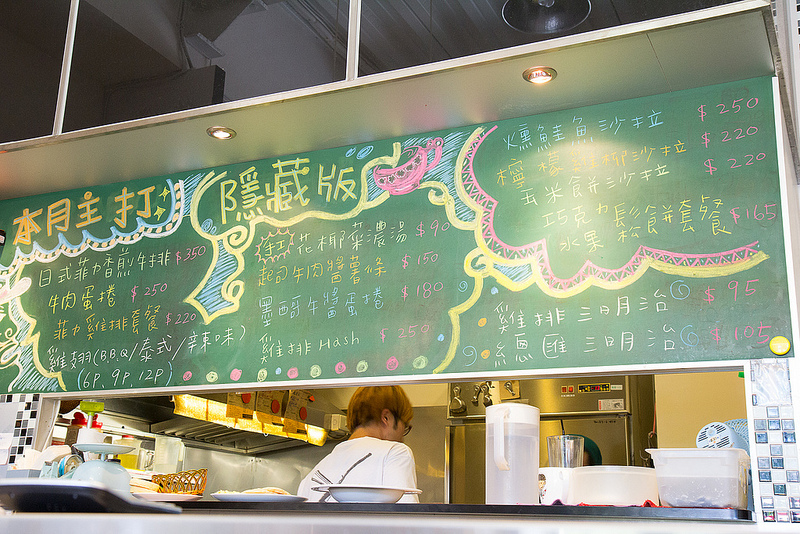 本月主打
日式菲力香煎牛排 $350
牛肉蛋捲 $250
菲力雞排套餐 $220
雞翅(B.B.Q/泰式/辣味)
(6p, 9p, 12p)
隱藏版
手工 花椰菜濃湯 $90
起司牛肉醬薯條 $150
墨西哥牛醬蛋捲 $180
雞排 Hash $250
燻鮭魚沙拉 $250
檸檬雞柳沙拉 $220
玉米餅沙拉 $220
巧克力鬆餅套餐 $165
水果
雞排三明治 $95
總匯三明治 $105